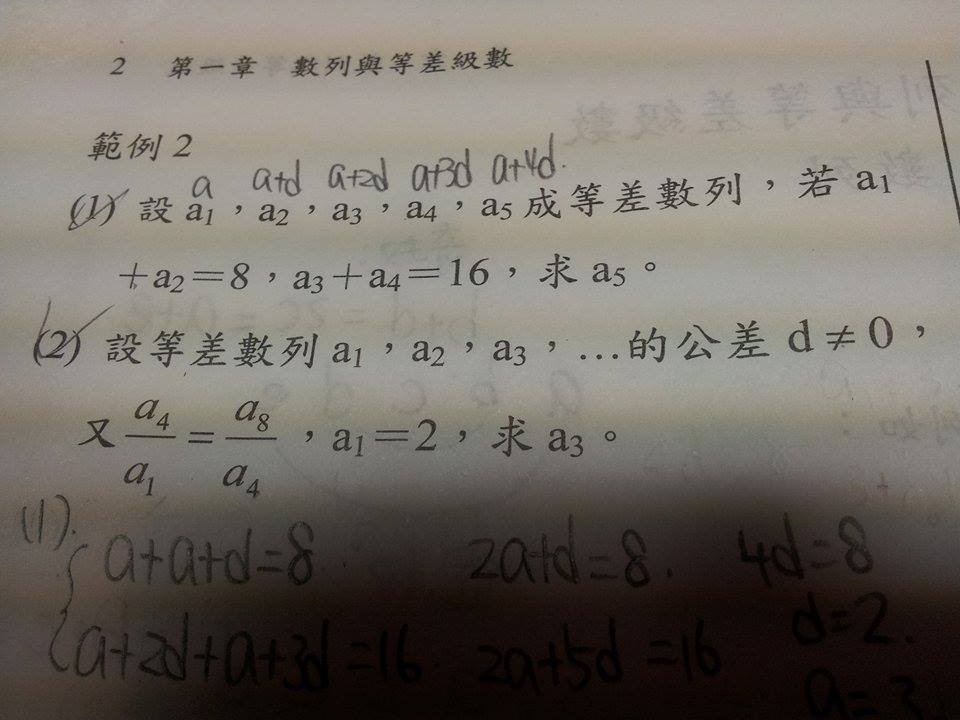 2 第一章 數列與等差級數
範例 2
a a+d a+2d a+3d a+4d.
(1) 設 a₁，a₂，a₃，a₄，a₅ 成等差數列，若 a₁
＋a₂＝8，a₃＋a₄＝16，求 a₅。
(2) 設等差數列 a₁，a₂，a₃，…的公差 d ≠ 0，
又 a₄/a₁ = a₈/a₄，a₁＝2，求 a₃。
(1).
a+a+d=8 2a+d=8. 4d=8
a+2d+a+3d=16 2a+5d=16 d=2.
a=3